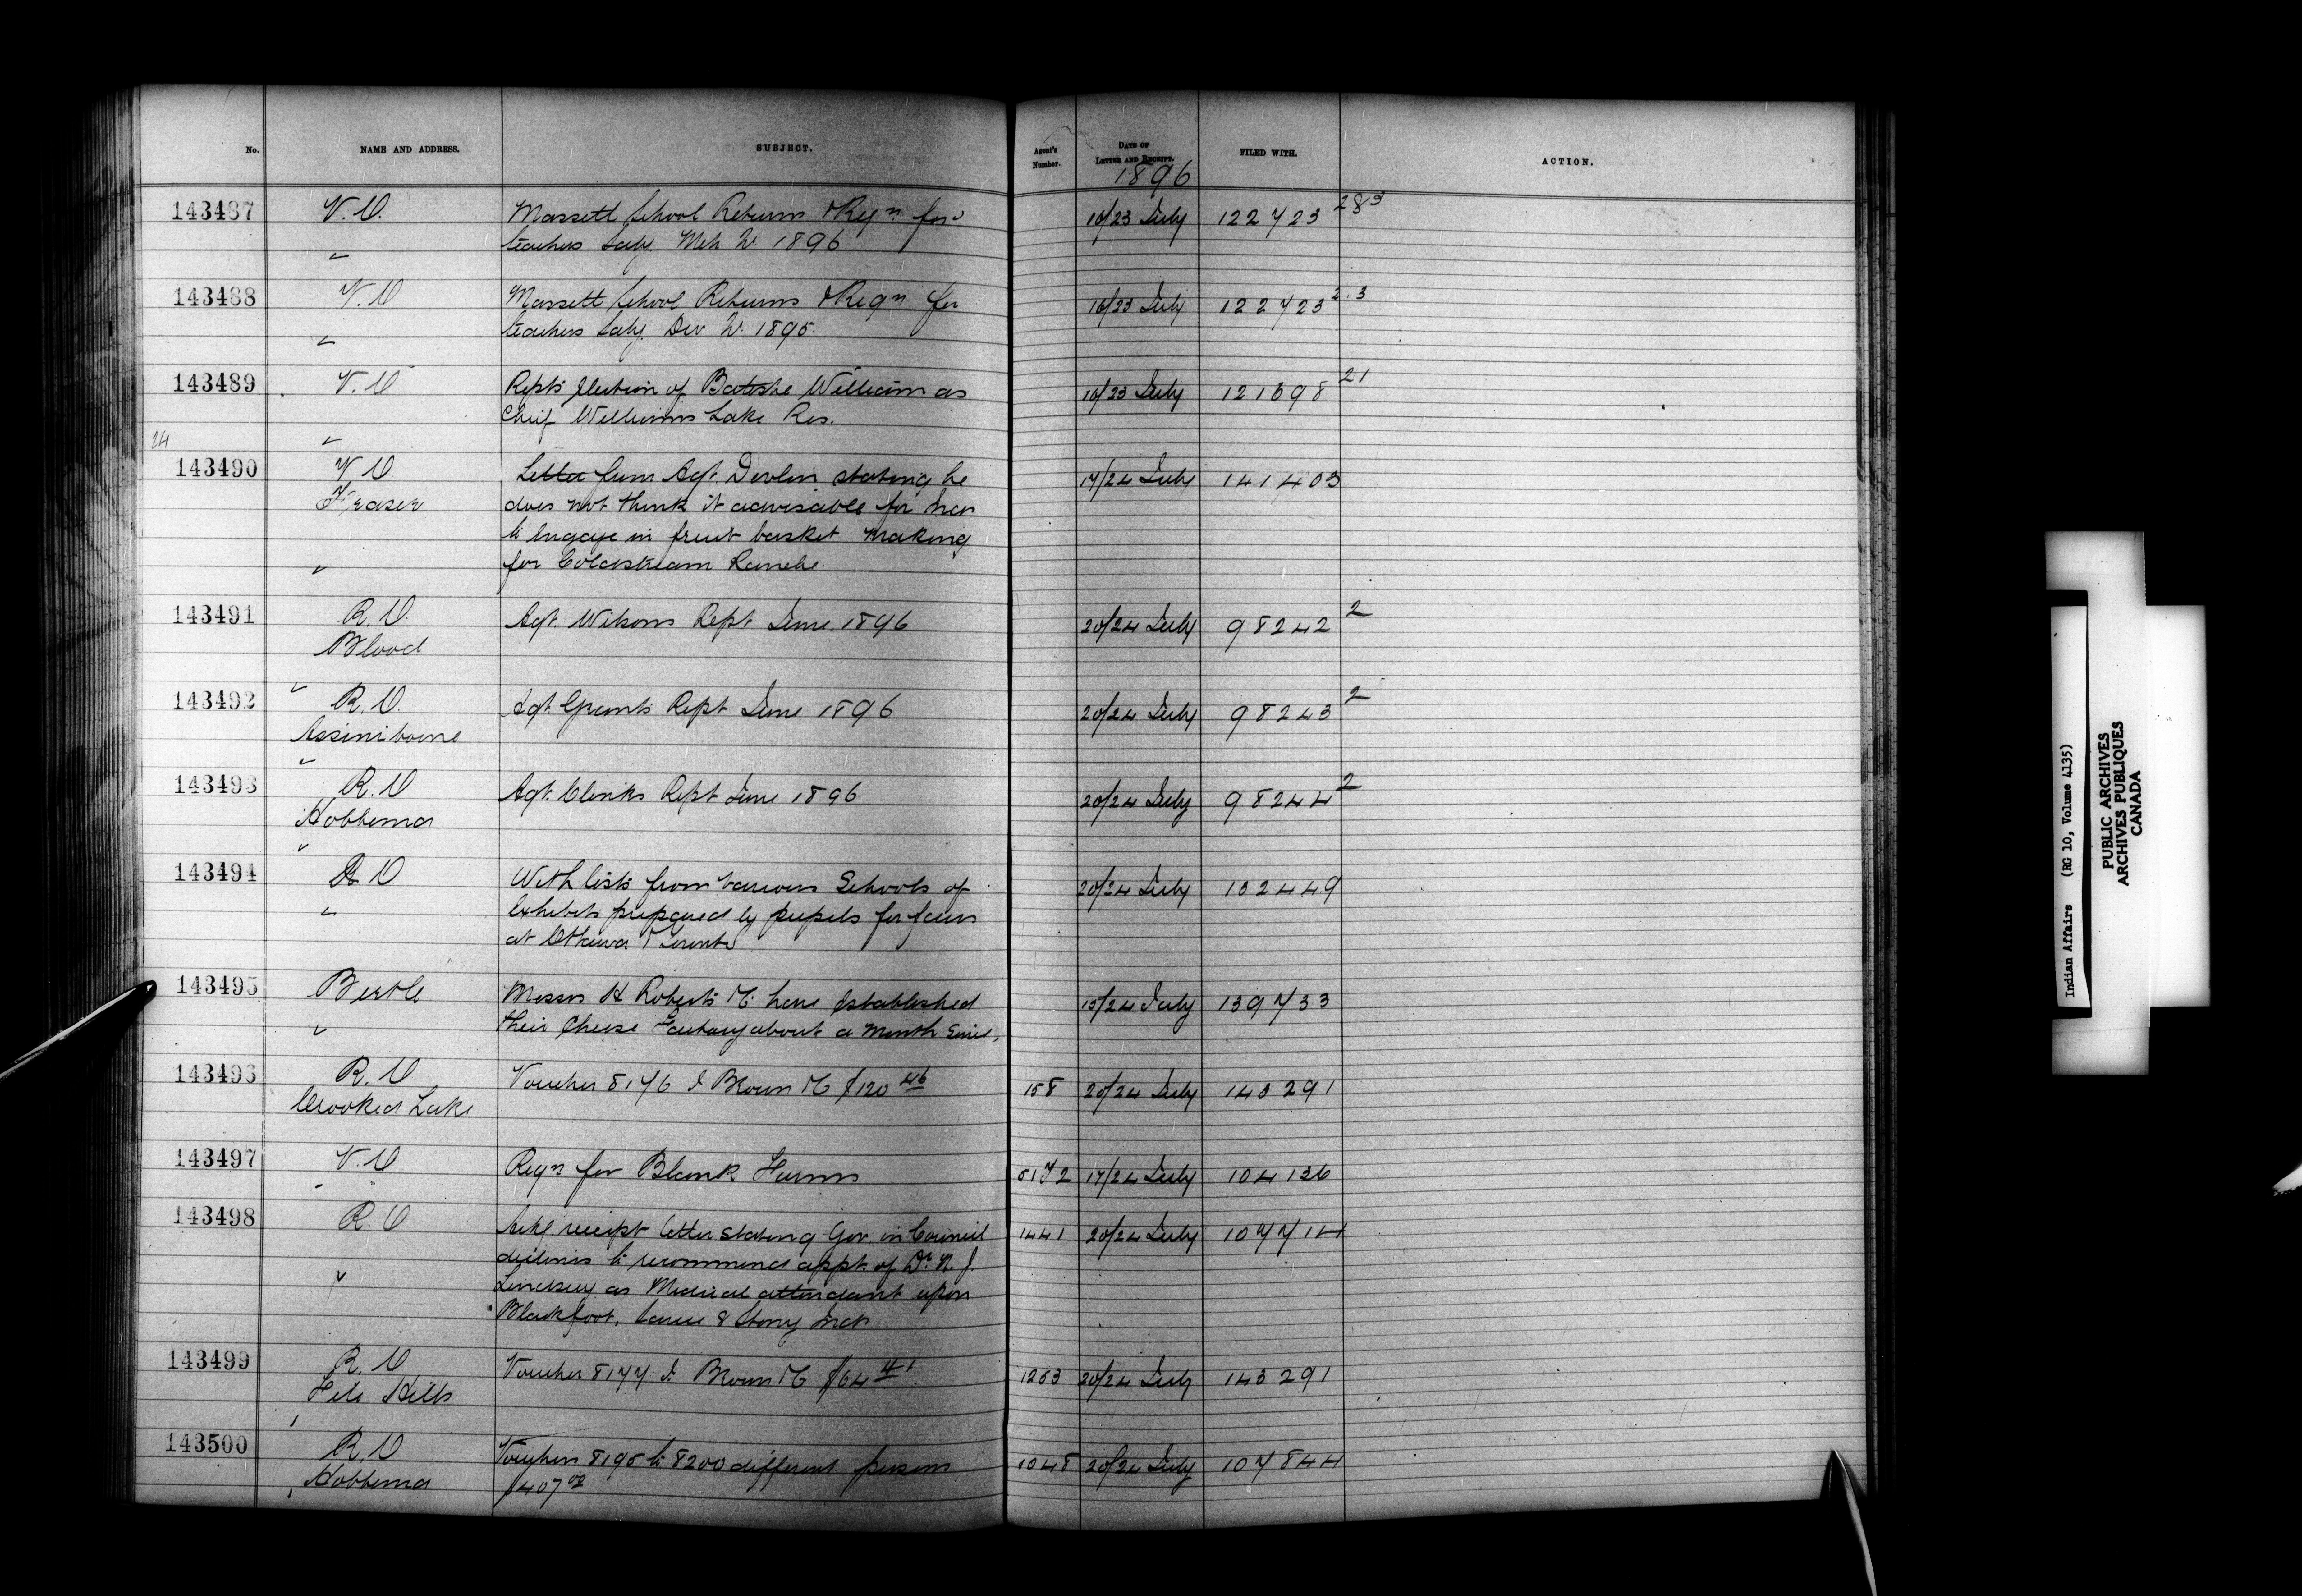 No. NAME AND ADDRESS. SUBJECT. Agent's Number. DATE OF LETTER AND RECEIPT. FILED WITH. ACTION.
1896
143487 V.O. Massett School Returns & Reqn for 16/23 July 122723 283
teachers Saly. Mch Qr 1896
143488 V.O Massett School Returns & Reqn for 16/23 July 122723
teachers Saly. Dec Qr. 1895.
143489 V.O Repts Election of Batoshe William as 16/23 July 121698 21
Chief Williams Lake Res.
24
143490 V.O. Letter from Agt. Devlin stating he 17/24 July 141403
Fraser does not think it advisable for Inds
to Engage in fruit basket making
for Coldstream Ranche
143491 R.O. Agt. Wilsons Rept June 1896 20/24 July 98242 2
Blood
143492 R.O. Agt. Grants Rept June 1896 20/24 July 98243 2
Assiniboine
143493 R.O Agt. Clinks Rept June 1896 20/24 July 98244 2
Hobbema
143494 R O With lists from various Schools of 20/24 July 132449
Exhibits prepared by pupils for fairs
at Ottawa & Toronto
143495 Birtle Messrs H Roberts & Co have Established 13/24 July 139733
their Cheese Factory about a month Since.
143496 R.O Voucher 8176 I Brown & Co $120 46 158 20/24 July 143291
Crooked Lake
143497 V.O Reqn for Blank Forms 5172 17/24 July 104136
143498 R.O Ackg receipt letter stating Gov. in Council 1441 20/24 July 107714
declines to recommend appt. of Dr. N. J.
Lindsay as Medical attendant upon
Blackfoot, Sarcee & Stony Inds
143499 R.O Voucher 8177 I. Brown & Co $64 41 1263 20/24 July 143291
File Hills
143500 R.O Vouchers 8195 to 8200 different persons 1048 20/24 July 107844
Hobbema $407 00
Indian Affairs (RG 10, Volume 4135)
PUBLIC ARCHIVES
ARCHIVES PUBLIQUES
CANADA